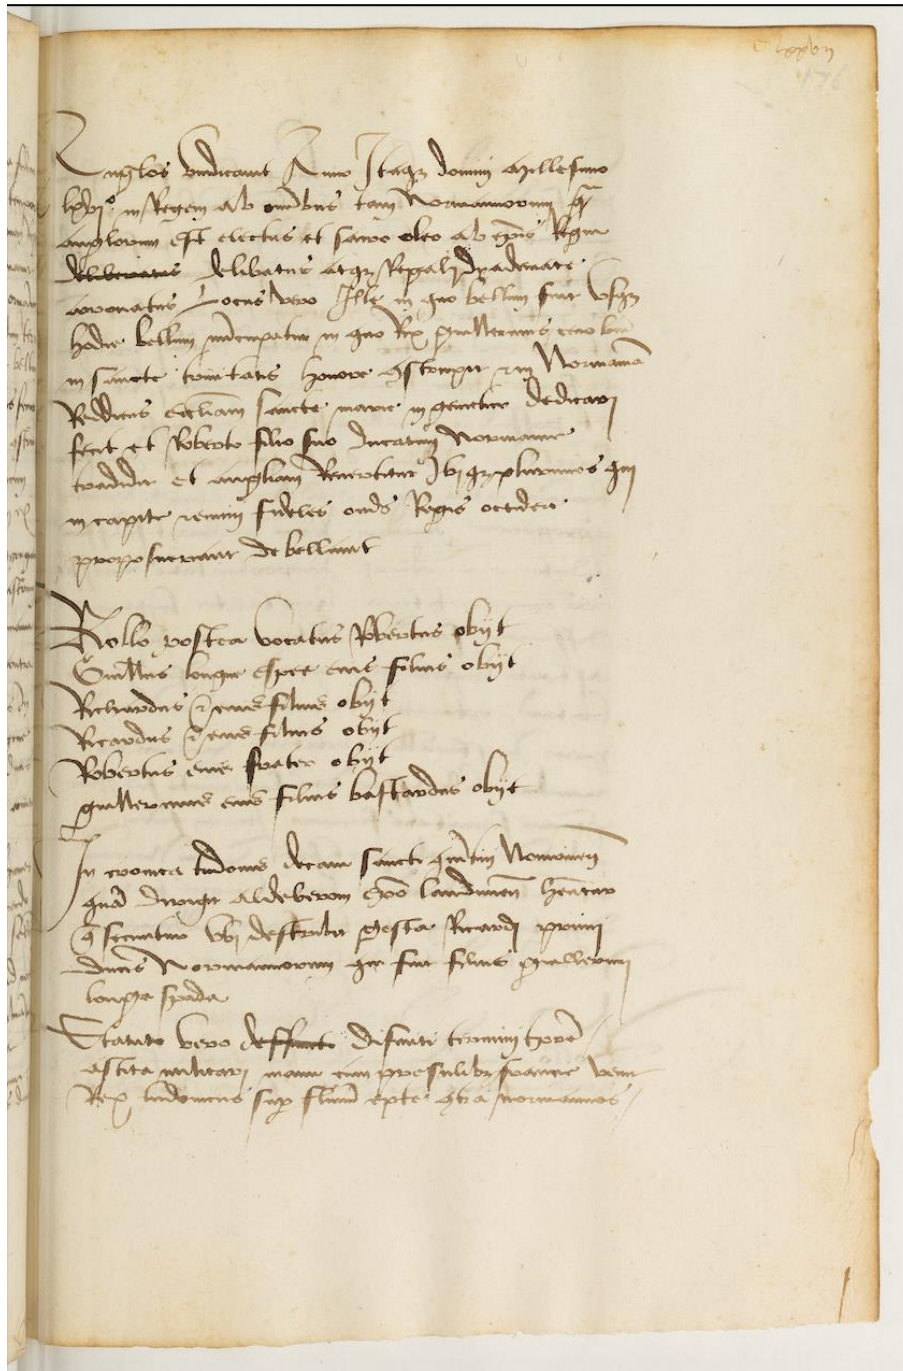 Anglos vindicavit Anno Itaque domini millesimo
lxvjº in Regem ab omnibus tam Normannorum quam
anglorum est electus et sacro oleo ab episcopis Regni
deliberatus delibatus atque Regali dyademate
coronatus Locus vero Ille in quo bellum fuit Usque
hodie bellum nuncupatur in quo Rex guillermus cenobium
in sancte trinitatis honore construxit et in Normanniam
Reddiens ecclesiam sancte marie in gemetico dedicari
fecit et Roberto filio suo ducatum Normannie
tradidit et angliam Revertitur Ibique plurimos qui
in capite ieiunii fideles Regis occidere
proposuerant debellavit
Rollo postea vocatus Robertus obijt
Guillermus longue espee eius filius obijt
Richardus 2 eius filius obijt
Ricardus 2 eius filius obijt
Robertus eius frater obijt
guillermus eius filius bastardus obijt
In cronica dudonis decani sancti quintini
quam dirigit aldeberoni episcopo laudunensi habentur
que secuntur ubi describit gesta Ricardi primi
ducis Normannorum qui fuit filius guillermi
longa spada
Statuto vero deffuncti difiniti termini tempore
astita militari manu cum presulibus francie venit
Rex ludovicus super fluvium epte contra normannos